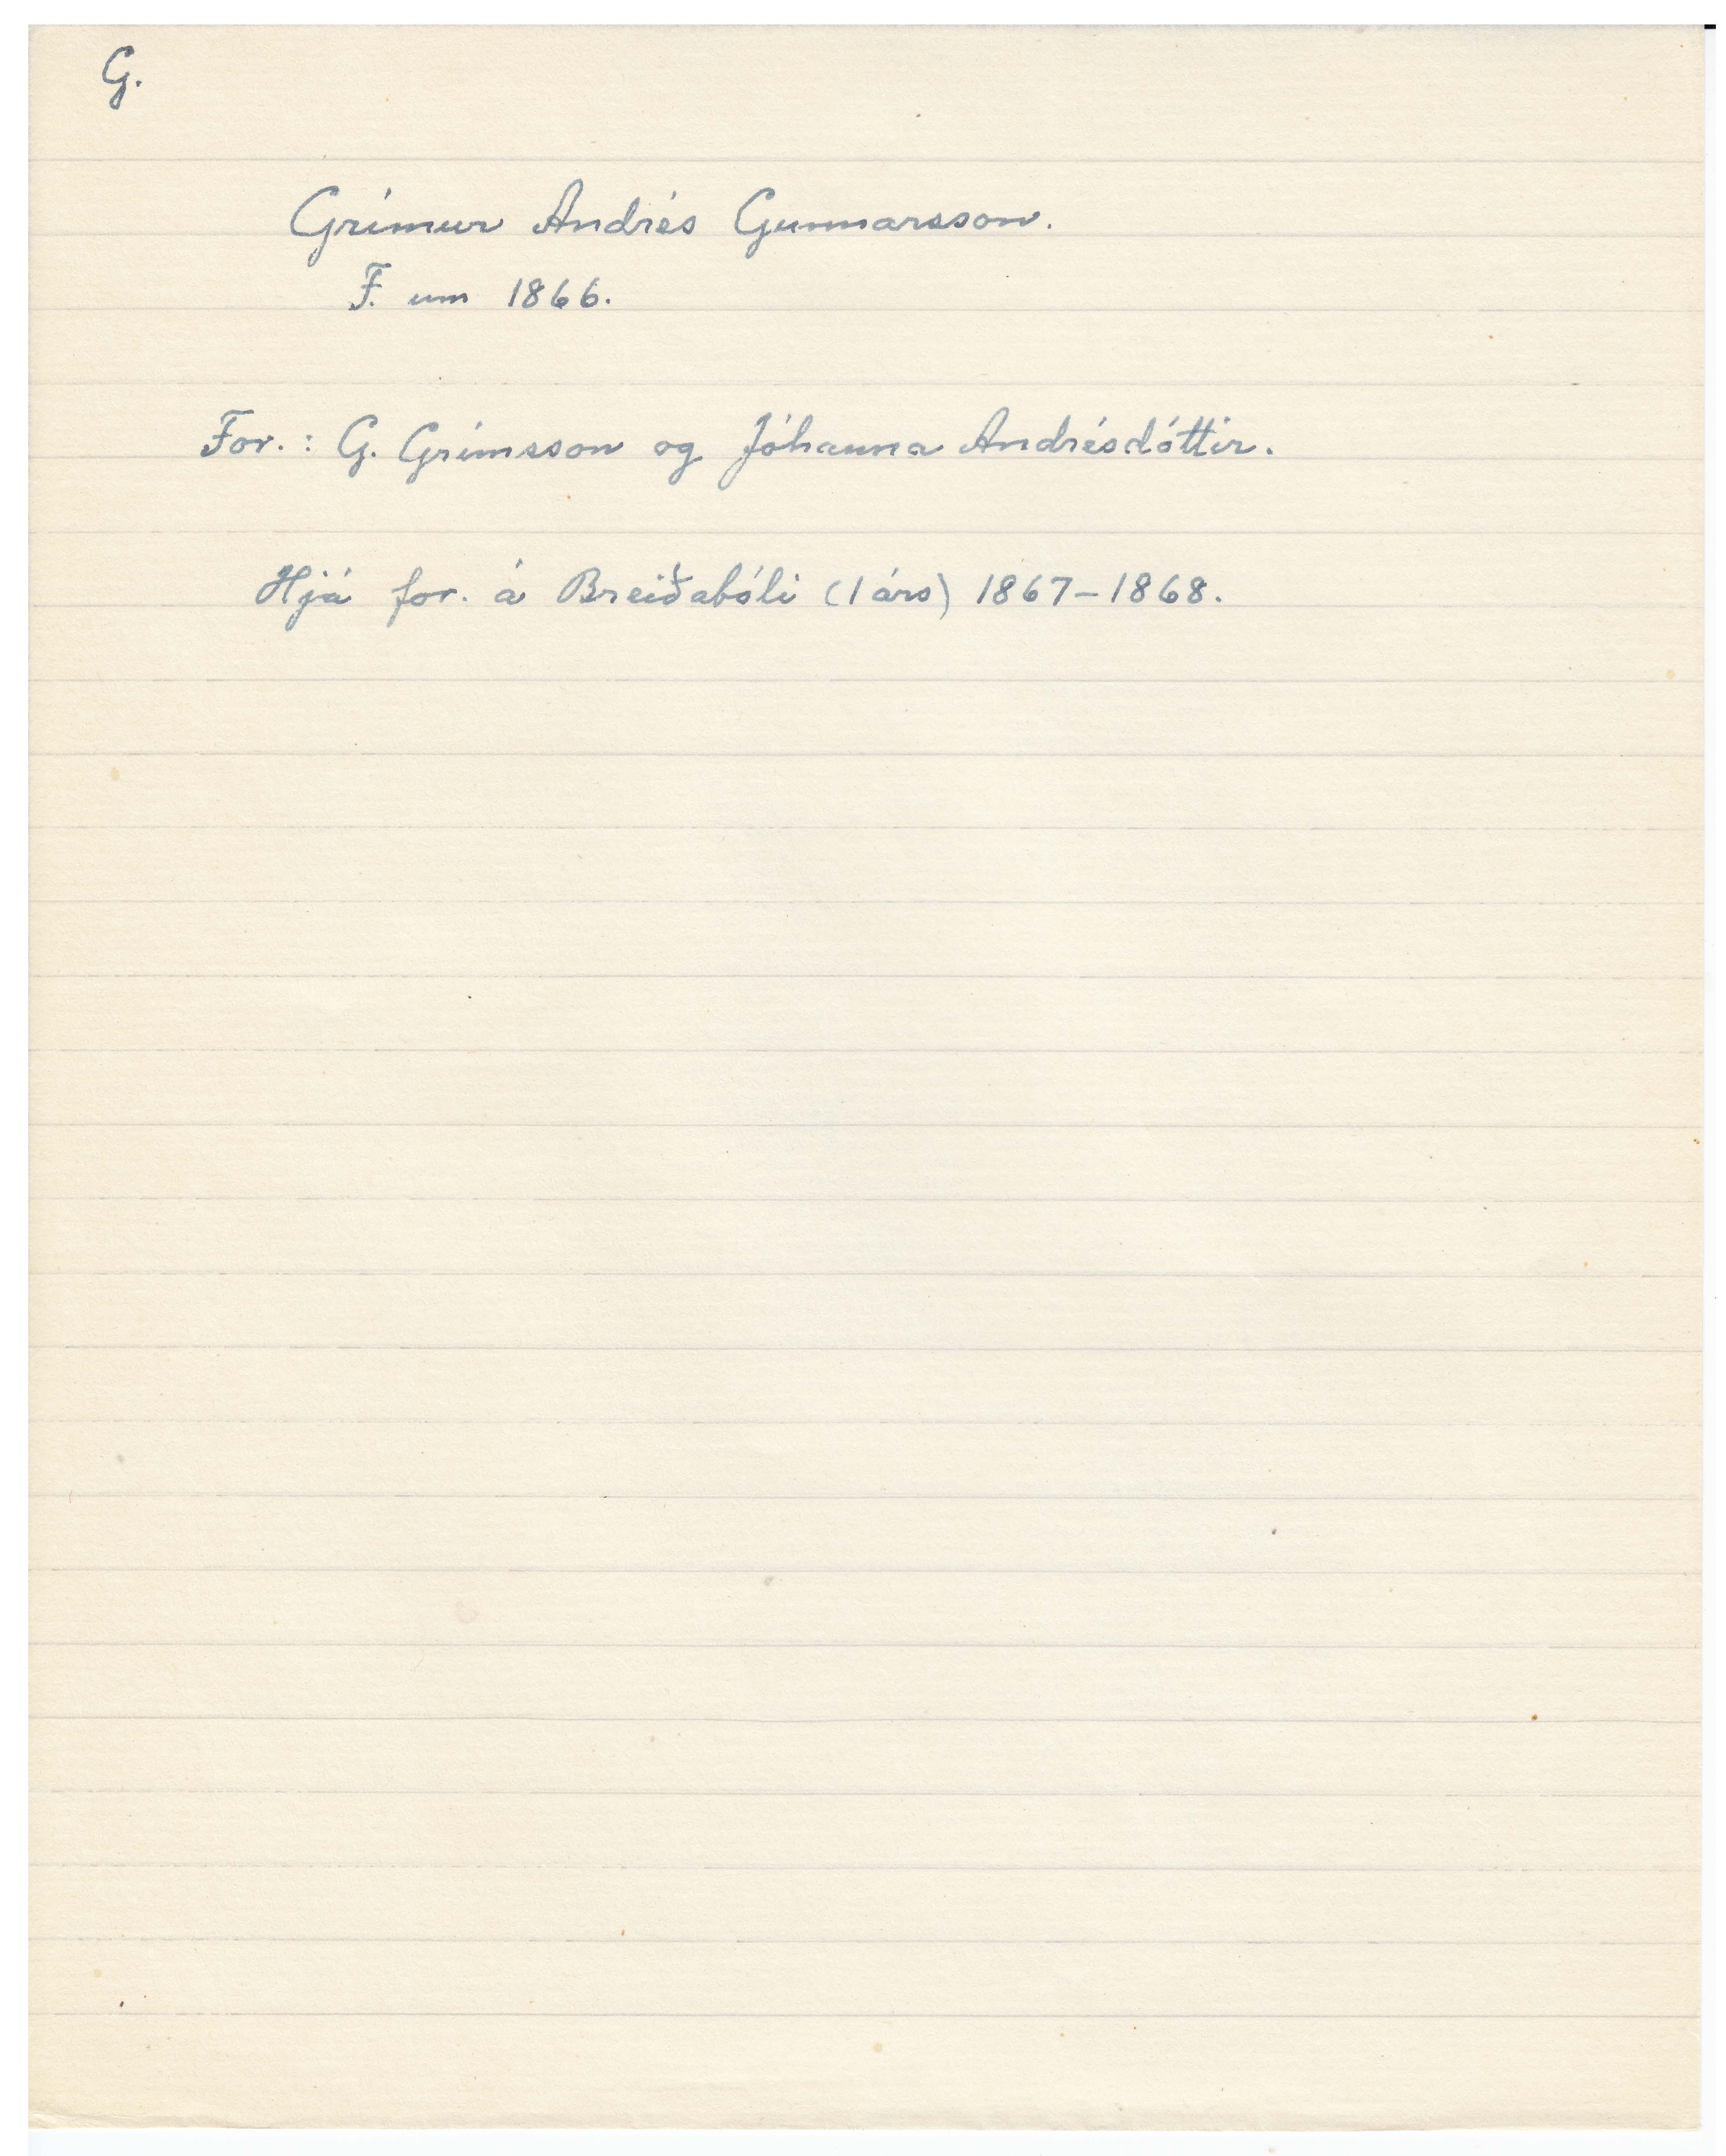 G.
Grímur Andrés Gunnarsson.
F. um 1866.
For.: G. Grímsson og Jóhanna Andrésdóttir.
Hjá for. á Breiðabóli (1 árs) 1867-1868.